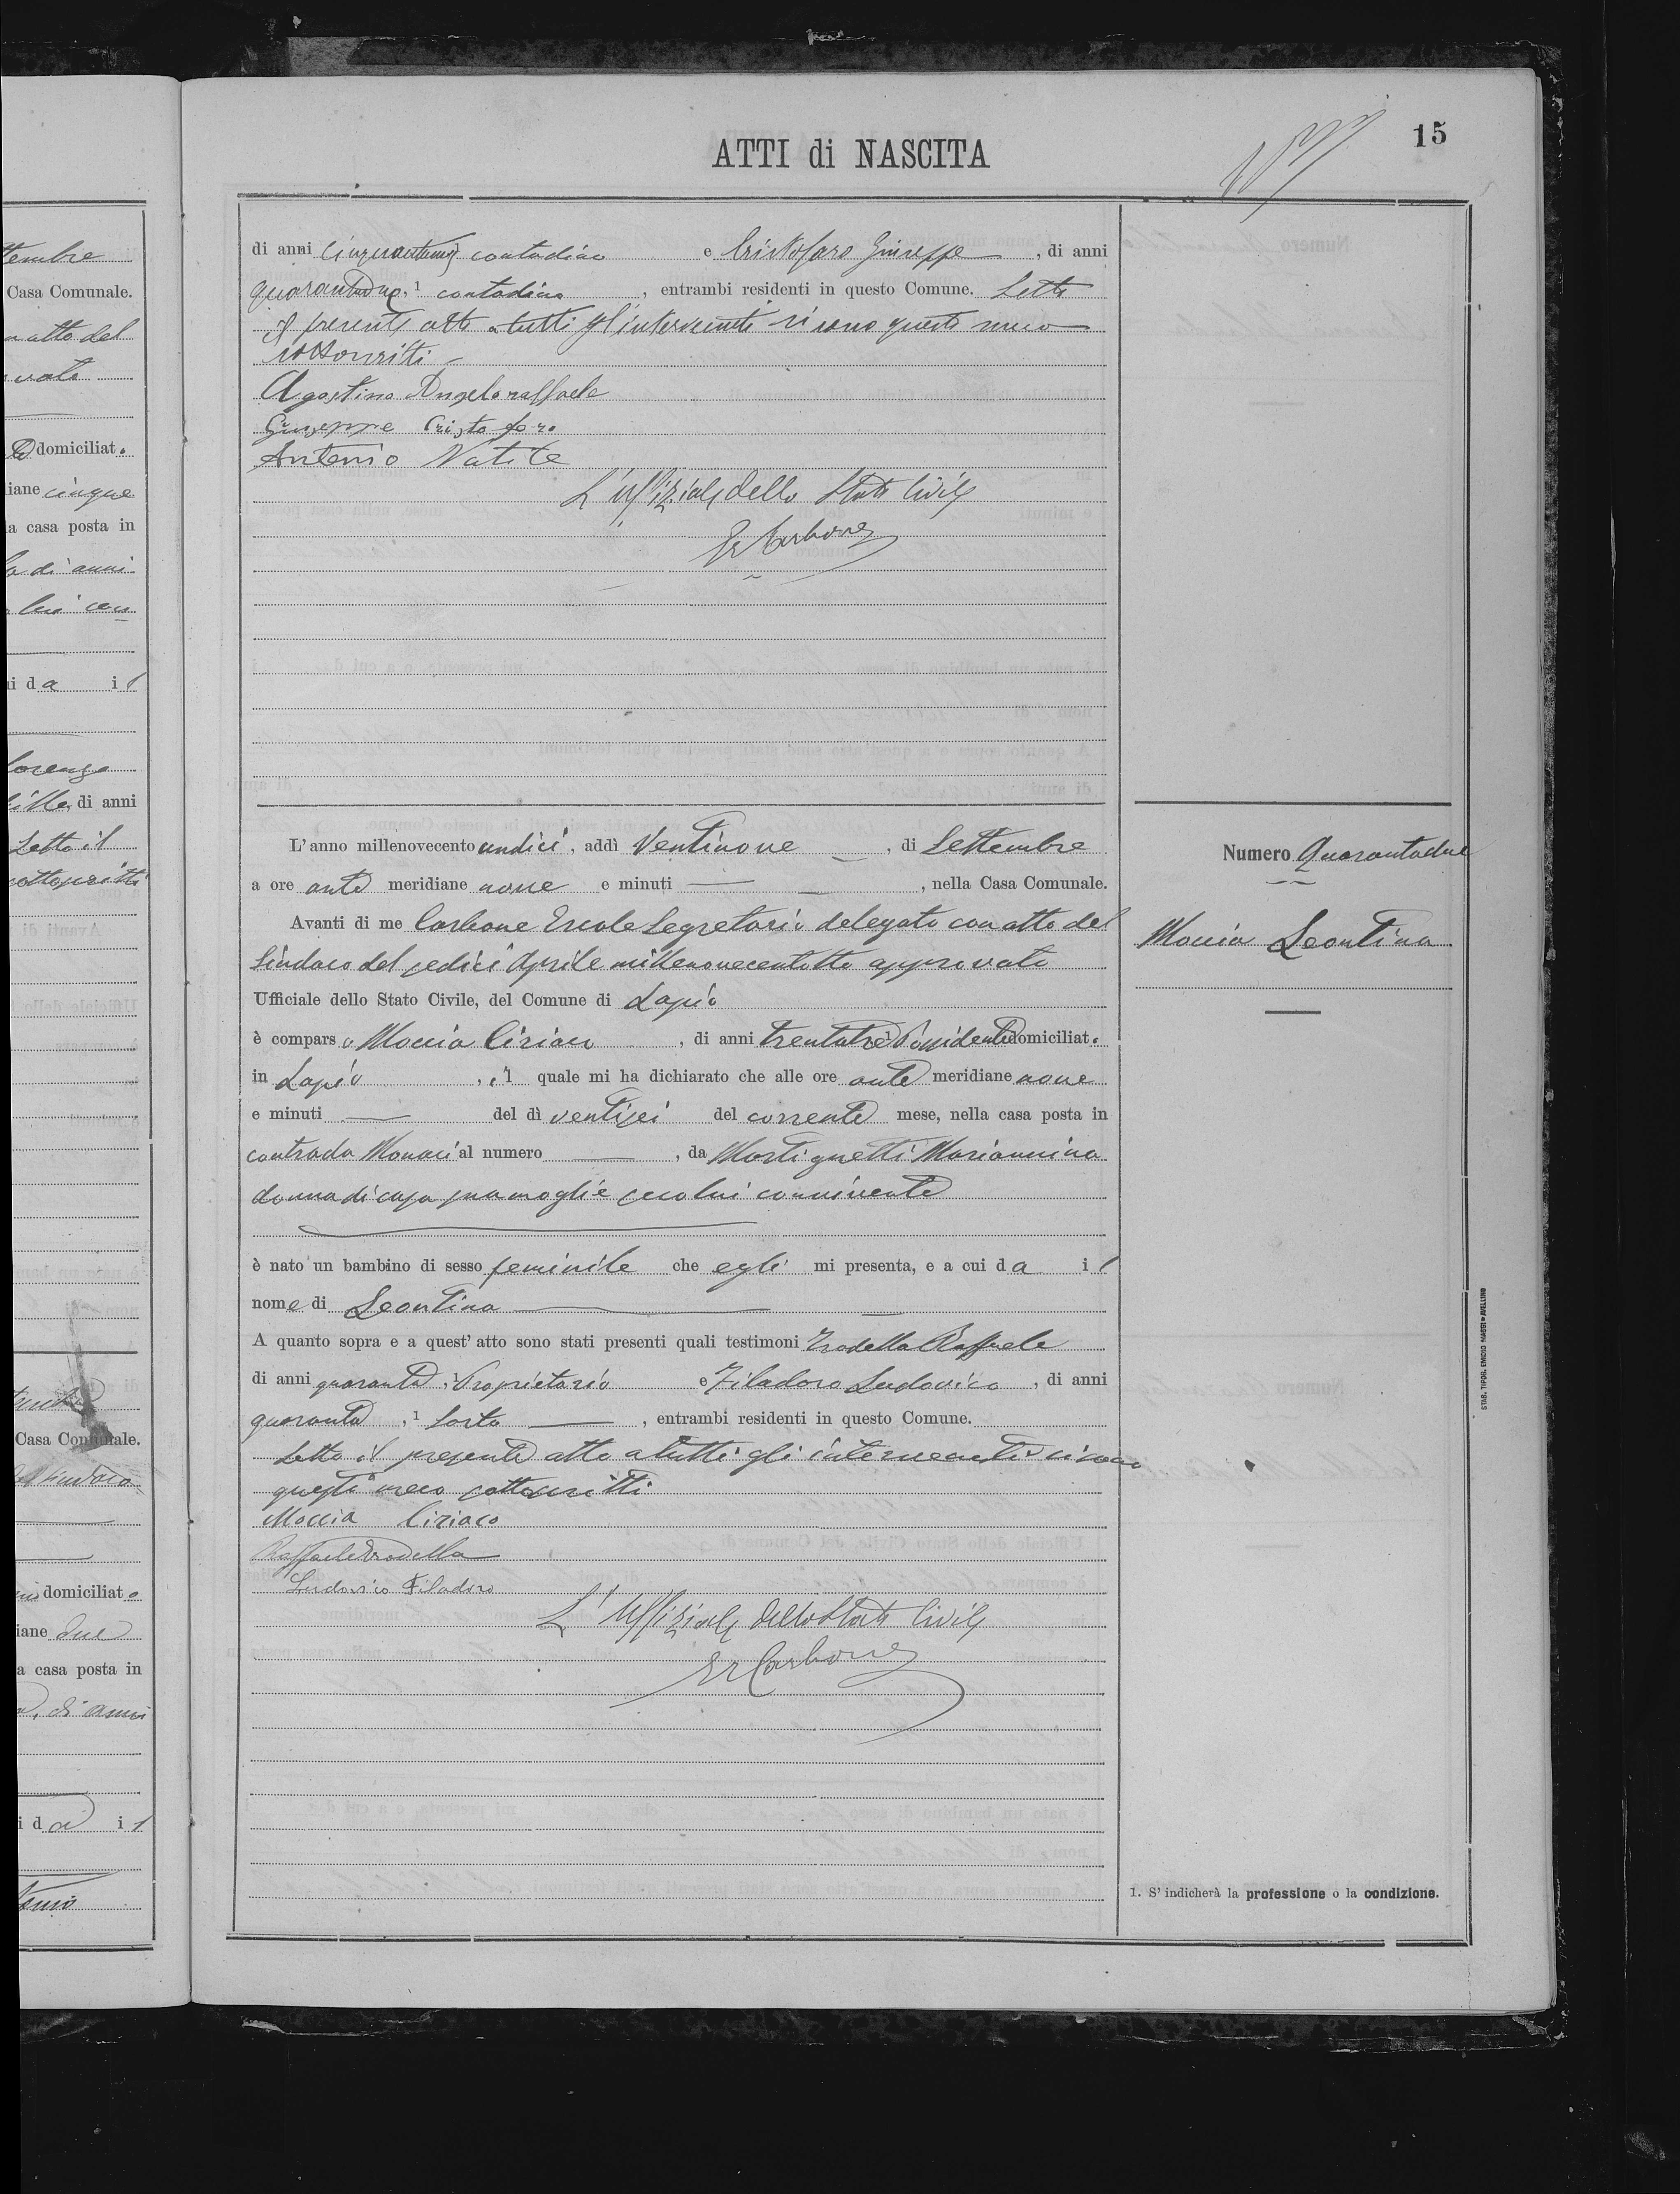 tembre
Casa Comunale.
n atto del
vato
domiciliato
iane cinque
a casa posta in
la di anni
lui con
i da il
Lorenzo
di anni
Letto il
sottoscritti
Casa Comunale.
del Sindaco
domiciliato
iane due
a casa posta in
di anni
i da il
15
ATTI di NASCITA
di anni contadino e Cristofaro Giuseppe, di anni
quarantadue, 1 contadino, entrambi residenti in questo Comune. Letto
il presente atto a tutti gl'intervenuti si sono questi meco
sottoscritti
Agostino Angeloraffaele
Giuseppe Cristofaro
Antonio Natite
L'Uffiziale dello Stato Civile
Er Carbone
L'anno millenovecento undici, addì Ventinove, di Settembre
a ore ante meridiane nove e minuti —, nella Casa Comunale.
Avanti di me Carbone Ercole Segretario delegato con atto del
Sindaco del sedici Aprile millenovecentotto approvato
Ufficiale dello Stato Civile, del Comune di Lapio
è comparso Moccia Ciriaco, di anni trentatre Possidente domiciliato
in Lapio, il quale mi ha dichiarato che alle ore ante meridiane nove
e minuti — del dì ventisei del corrente mese, nella casa posta in
contrada Monaci al numero —, da Martignetti Mariannina
donna di casa sua moglie seco lui convivente
è nato un bambino di sesso feminile che egli mi presenta, e a cui da il
nome di Leontina
A quanto sopra e a quest' atto sono stati presenti quali testimoni Trodella Raffaele
di anni quaranta, 1 Proprietario e Filadoro Ludovico, di anni
quaranta, 1 Sarto —, entrambi residenti in questo Comune.
Letto il presente atto a tutti gli intervenuti si sono
questi meco sottoscritti
Moccia Ciriaco
Raffaele Trodella
Ludovico Filadoro
L'Uffiziale dello Stato Civile
Er Carbone
Numero Quarantadue
Moccia Leontina
1. S' indicherà la professione o la condizione.
STAB. TIPOG. EMIDIO MAGGI - AVELLINO